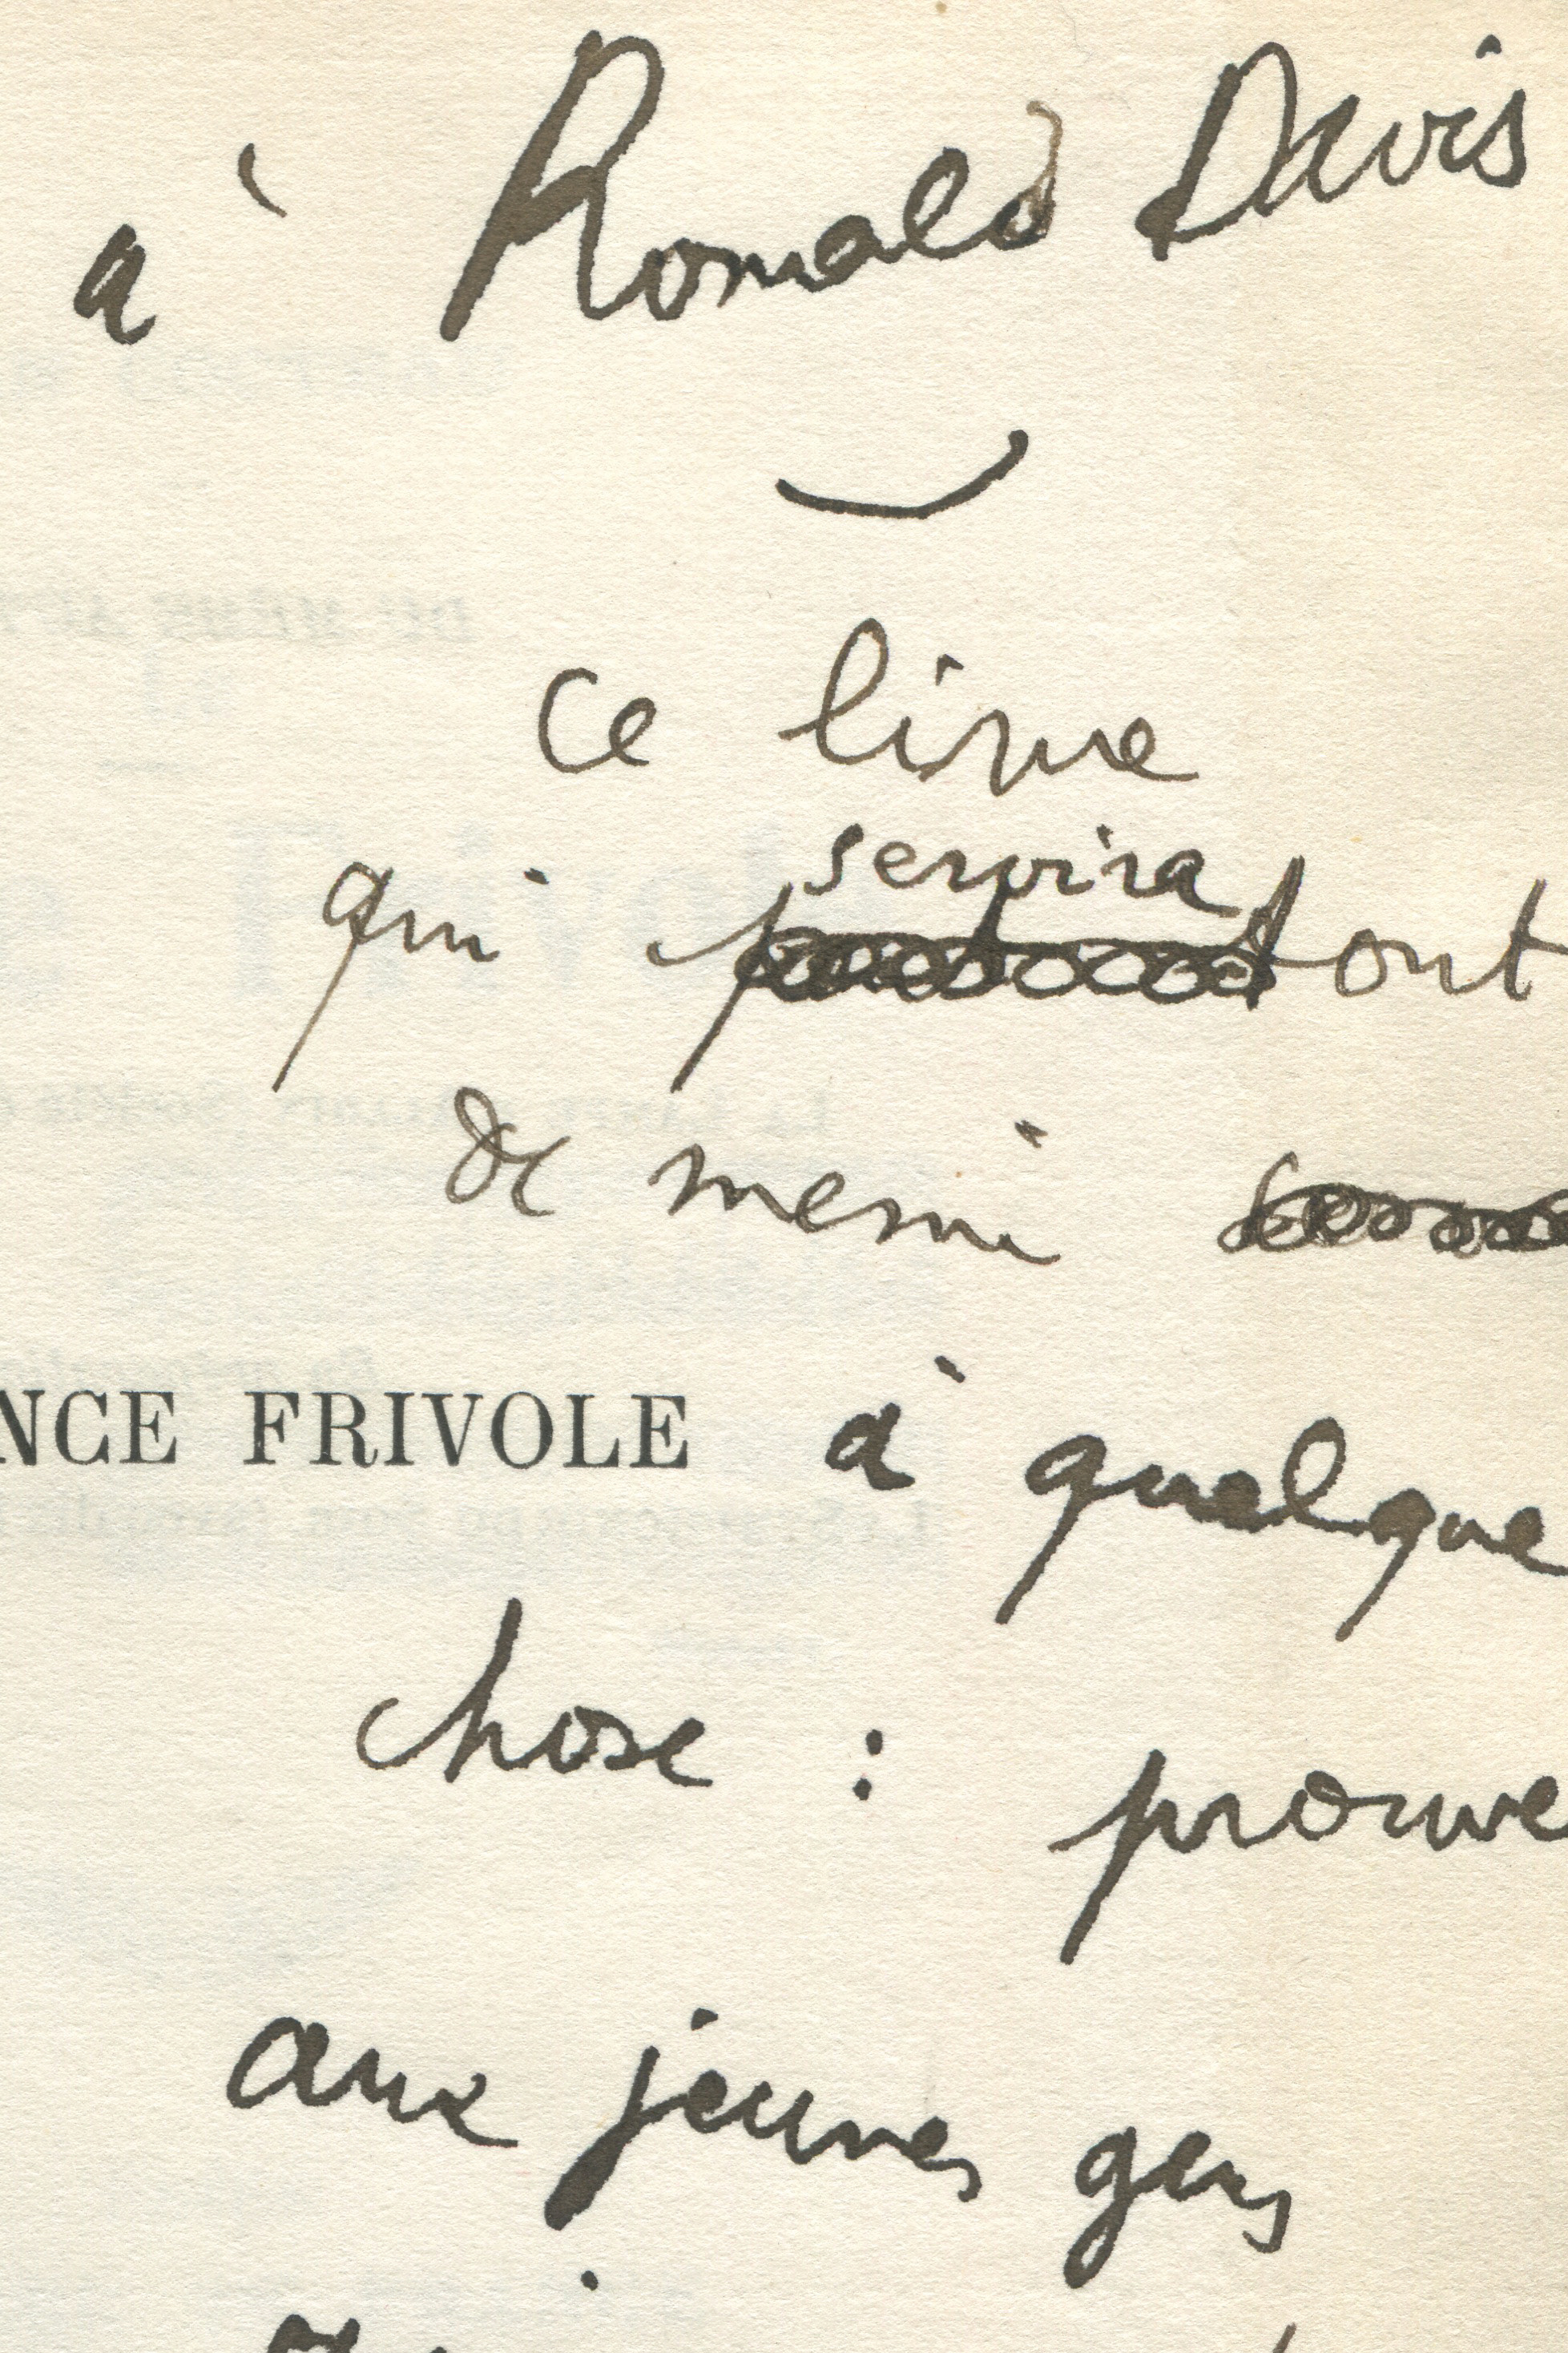 à Ronald Davis
ce livre
servira
qui tout
de meme
NCE FRIVOLE à quelque
chose : prouve
aux jeunes gens